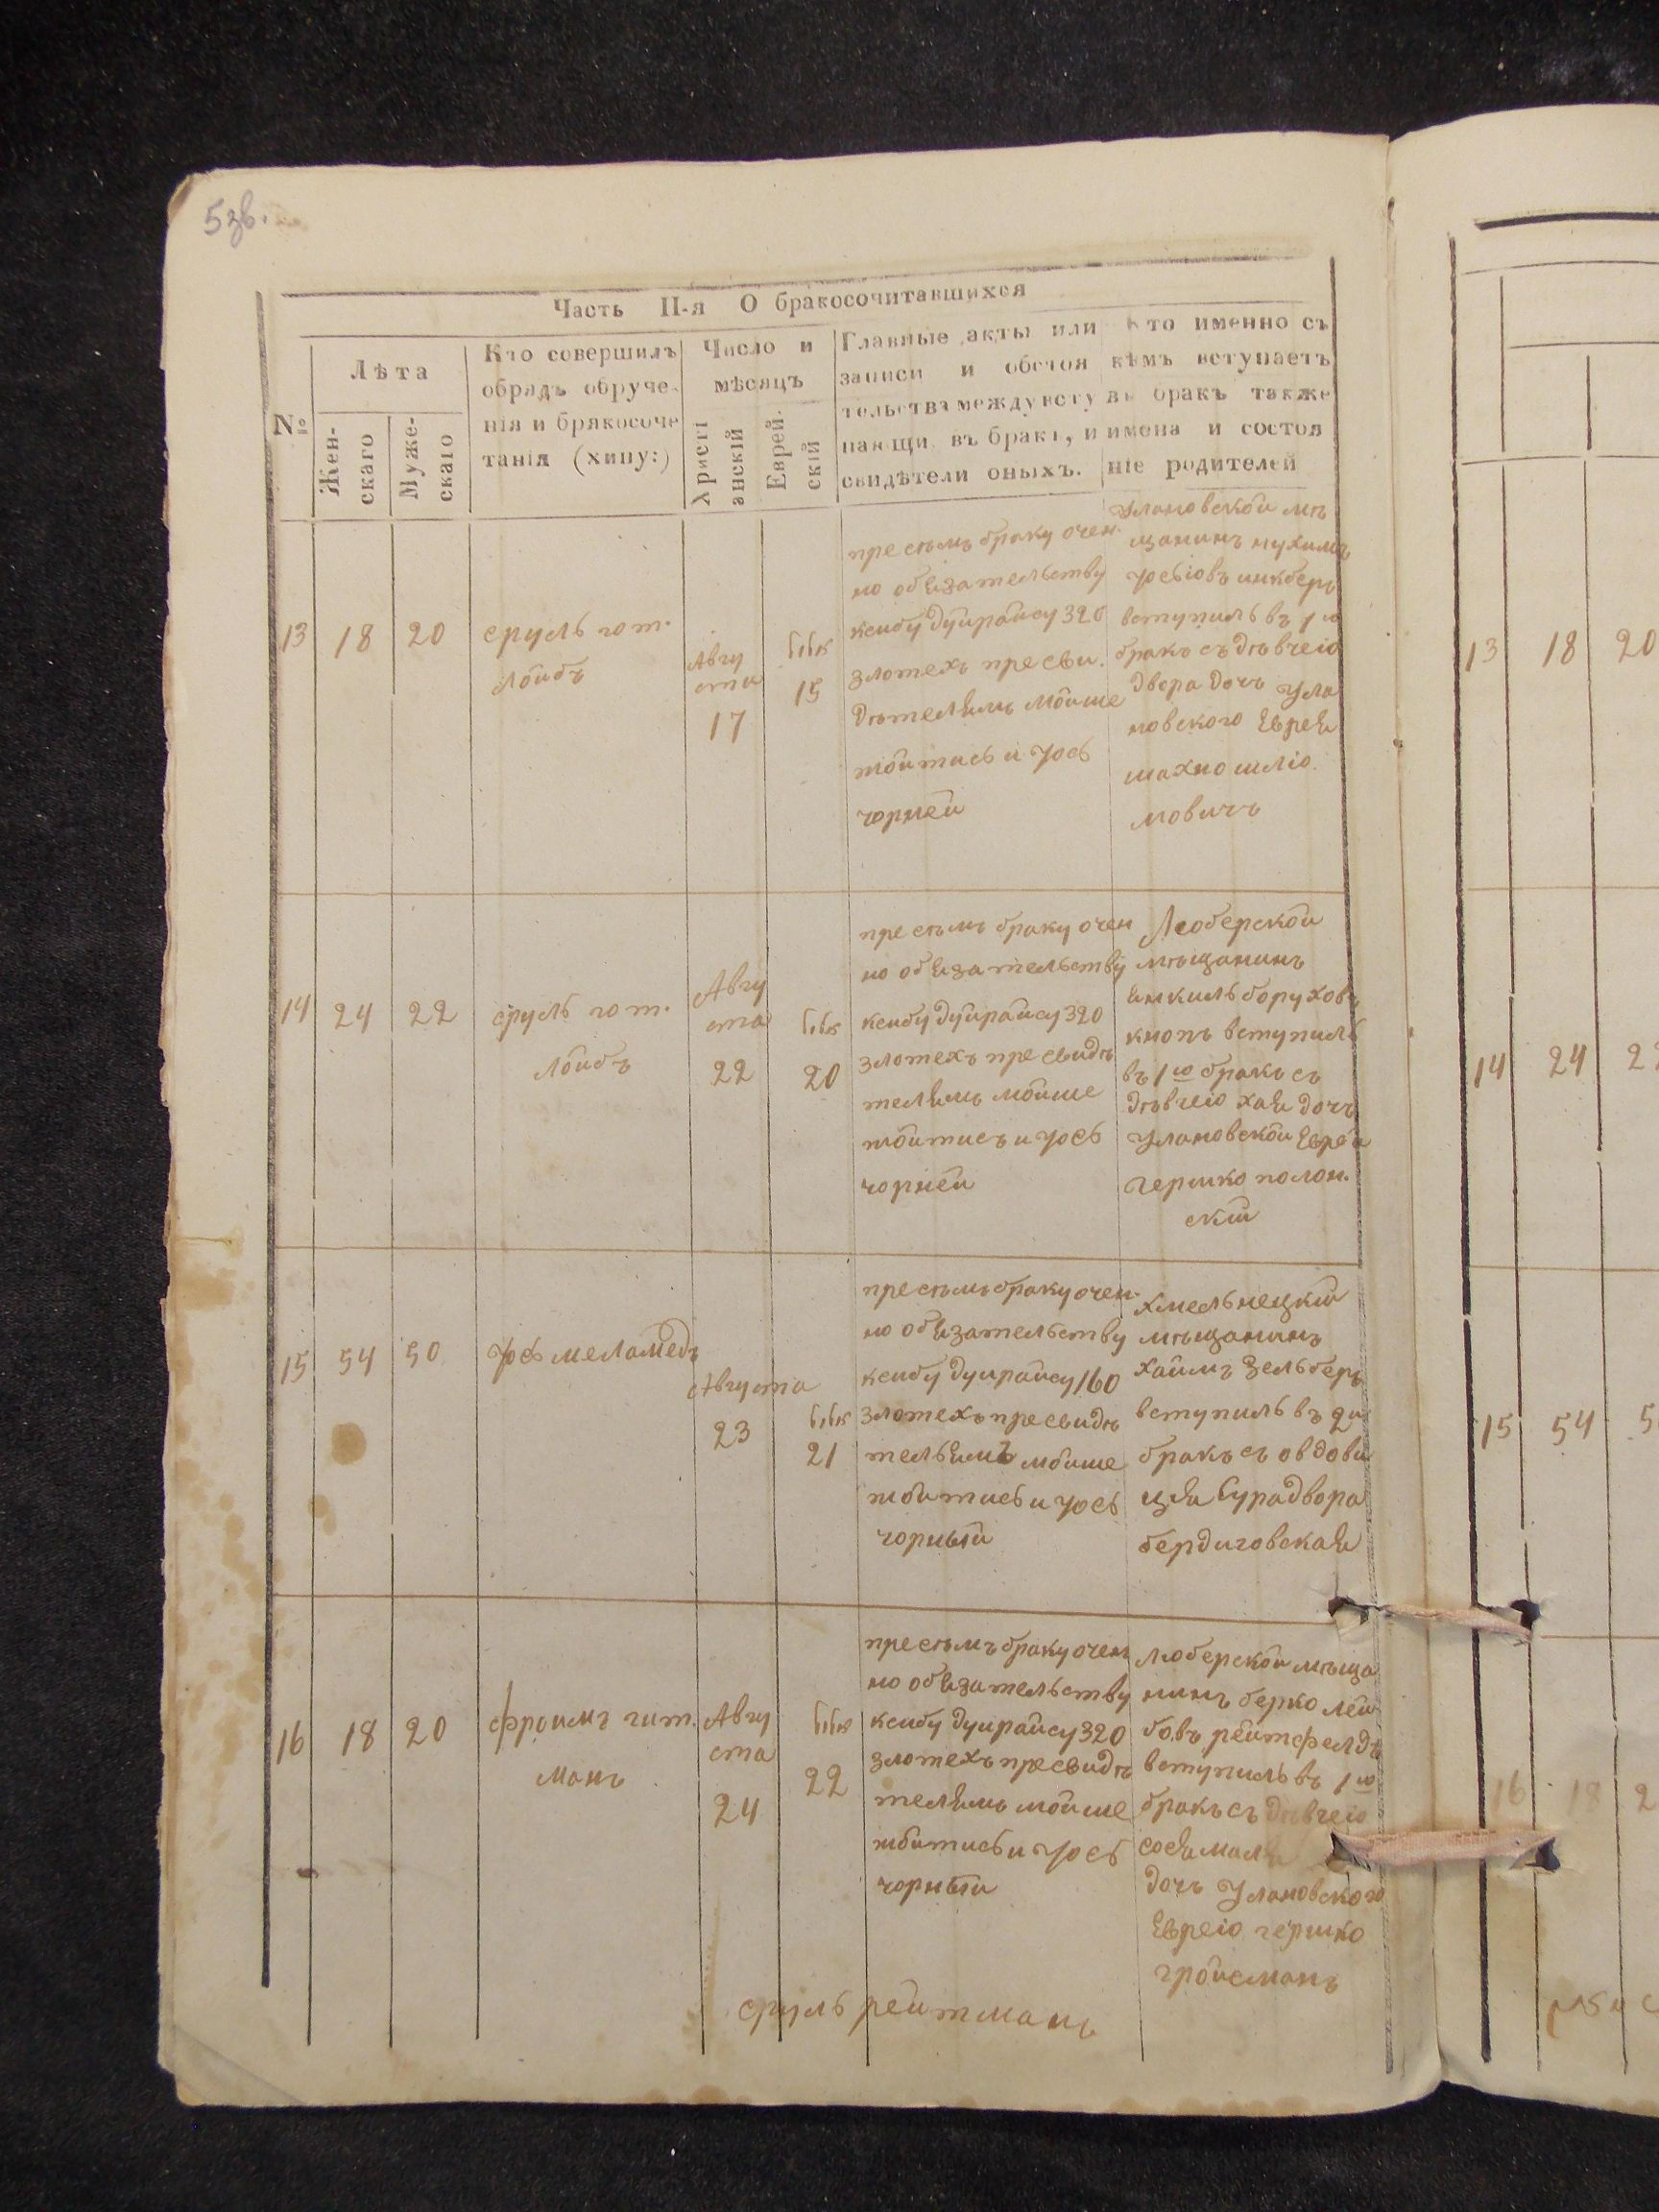 5зв.
Часть II-я О бракосочитавшихся
№
Лѣта
Жен-
скаго
Муже-
скаго
Кто совершилъ
обрядъ обруче-
нія и бракосоче
танія (хипу:)
Число и
мѣсяцъ
Христі
анскій
Еврей-
скій
Главные акты или
записи и обстоя
тельства между всту
пающи въ бракъ, и
свидѣтели оныхъ.
Кто именно съ
кѣмъ вступаетъ
въ бракъ также
имена и состоя
ніе родителей
13
18
20
сруль гот.
лойбъ
Авгу
ста
17
15
пре сѣмъ браку очен.
но обязательству
ксибу дуирайсу 320
злотехъ пре сви.
дѣтелямъ мойше
тойтись и Іось
чорней
Улановской мѣ
щанинъ нухимъ
вступилъ въ 1ю
бракъ съ дѣвчею
двера дочь Ула
новского Еврея
махно шлїо.
мовичъ
14
24
22
сруль гот.
лойбъ
Авгу
ста
22
20
пре сѣмъ браку очен
но обязательству
ксибу дуирайсу 320
злотехъ пре свидѣ
телямъ мойше
тойтисъ и Іось
чорней
Люберской
мѣщанинъ
янкиль борухов
кнопъ вступилъ
въ 1ю бракъ съ
дѣвчею хая дочь
Улановской Еврей
гершко полон.
скій
15
54
50
Іось меламедъ
Августа
23
21
пре сѣмъ браку очен.
но обязательству
ксибу дуирайсу 160
злотехъ пре свидѣ
тельямъ мойше
тойтись и Іось
чорный
хмельнецкій
мѣщанинъ
хаймъ зельберъ
вступилъ въ 2й
бракъ съ овдови
ця сура двора
бердиговская
16
18
20
фроимъ гит.
манъ
Авгу
ста
24
22
пре сѣмъ браку очен
но обязательству
ксибу дуирайсу 320
злотехъ пре свидѣ
телямъ мойше
тойтись и Іось
чорный
люберской мѣща
нинъ берко лей
бовъ рейтфелдъ
вступилъ въ 1ю
бракъ съ дивчею
дочь Улановского
Еврею гершко
гройсманъ
сруль рейтманъ
13 18 20
14 24 2
15 54 5
16 18 2